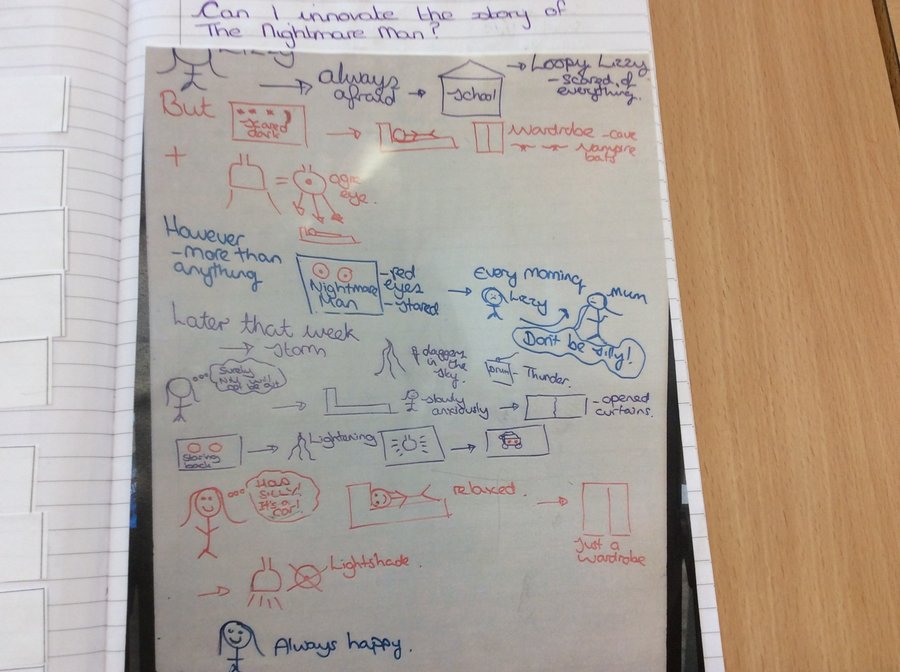 Can I innovate the story of
The Nightmare Man?
Lizzy
always
afraid
School
Loopy Lizzy
- scared of
everything.
But
Scared
dark
Wardrobe - cave
Vampire
bats
+
=
ogre
eye.
However
- more than
anything
Nightmare
Man
- red
eyes
- stared
Every morning
Lizzy
Mum
Don't be silly!
Later that week
Storm
daggers
in the
sky.
Drum
- Thunder.
Surely
- slowly
anxiously
- opened
curtains.
Staring
back
Lightening
How
SILLY!
It's a
car!
relaxed.
Just a
wardrobe
Lightshade.
Always happy.